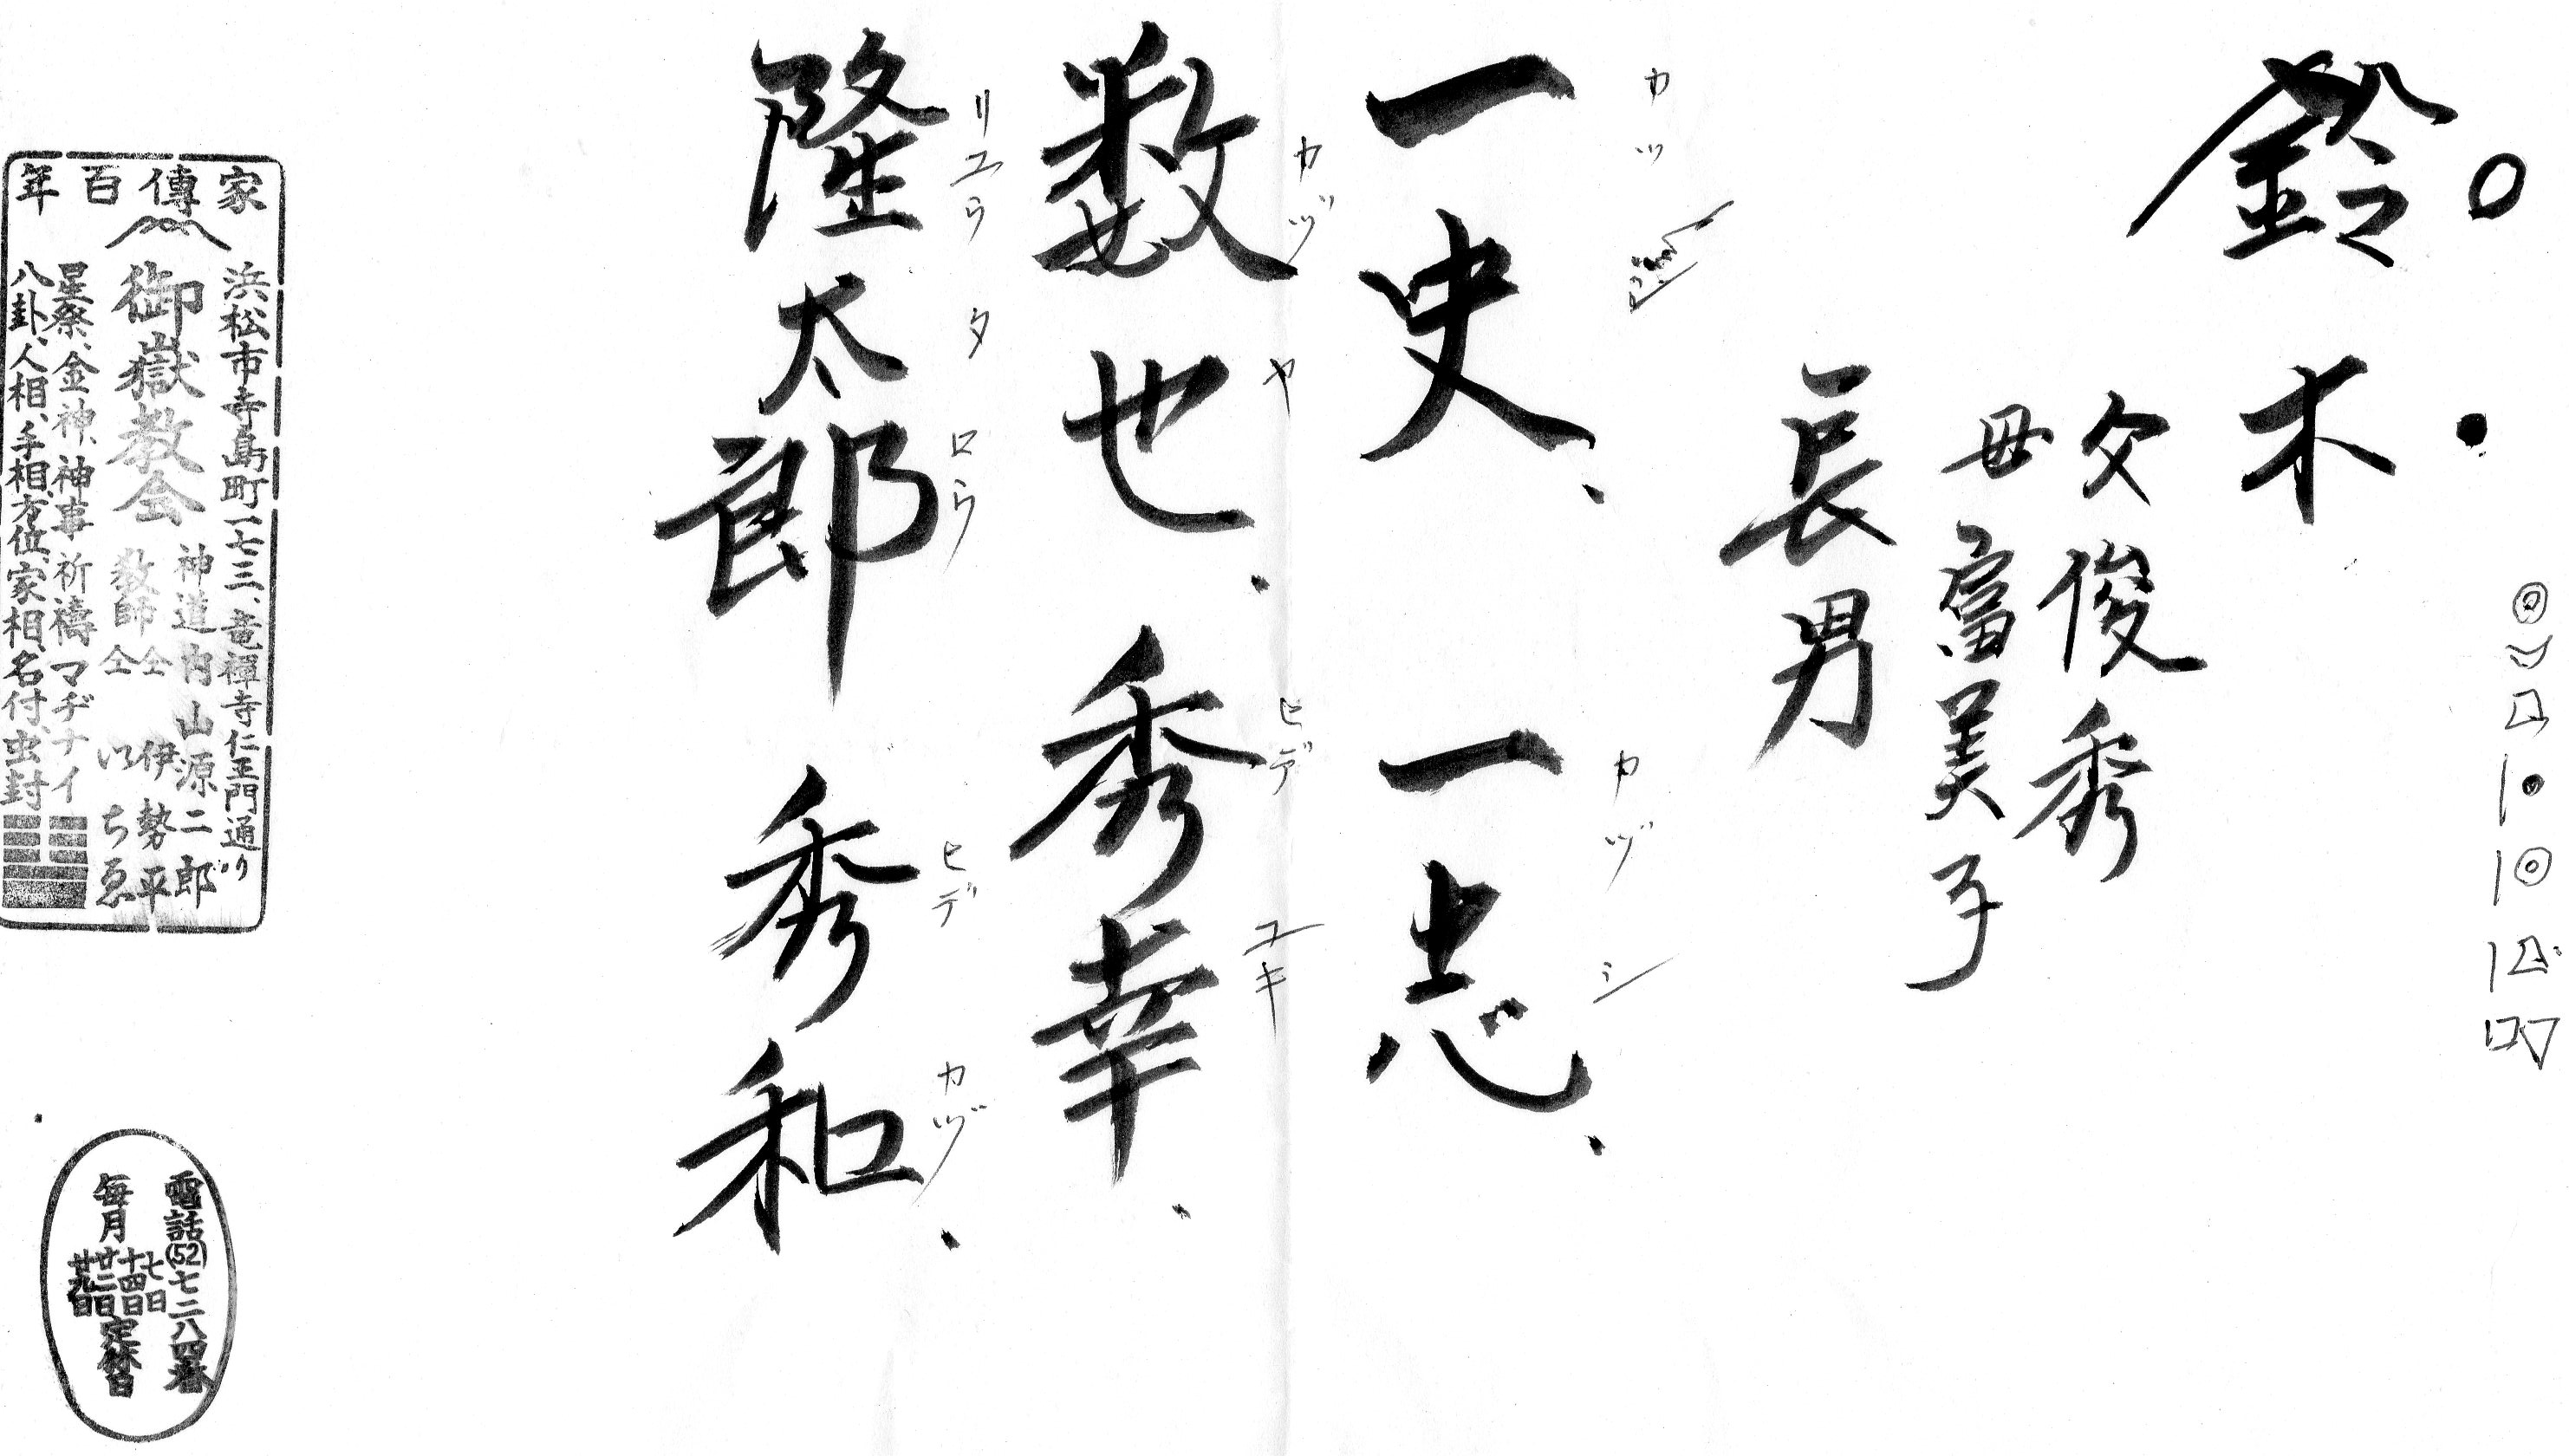 鈴木
父俊秀
母富美子
長男
一史、一志、
カツ
カヅシ
数也、秀幸、
カヅヤ
ヒデユキ
隆太郎 秀和、
リユウタロウ
ヒデカヅ
家傳百年
浜松市寺島町一七三、竜禅寺仁王門通り
御嶽教会
神道内山源二郎
教師仝 伊勢平
仝 いちゑ
星祭、金神、神事祈祷マヂナイ
八卦、人相、手相、方位、家相、名付、虫封
電話(52)七二八四番
毎月
七日
十四日
廿二日
廿九日
定休日